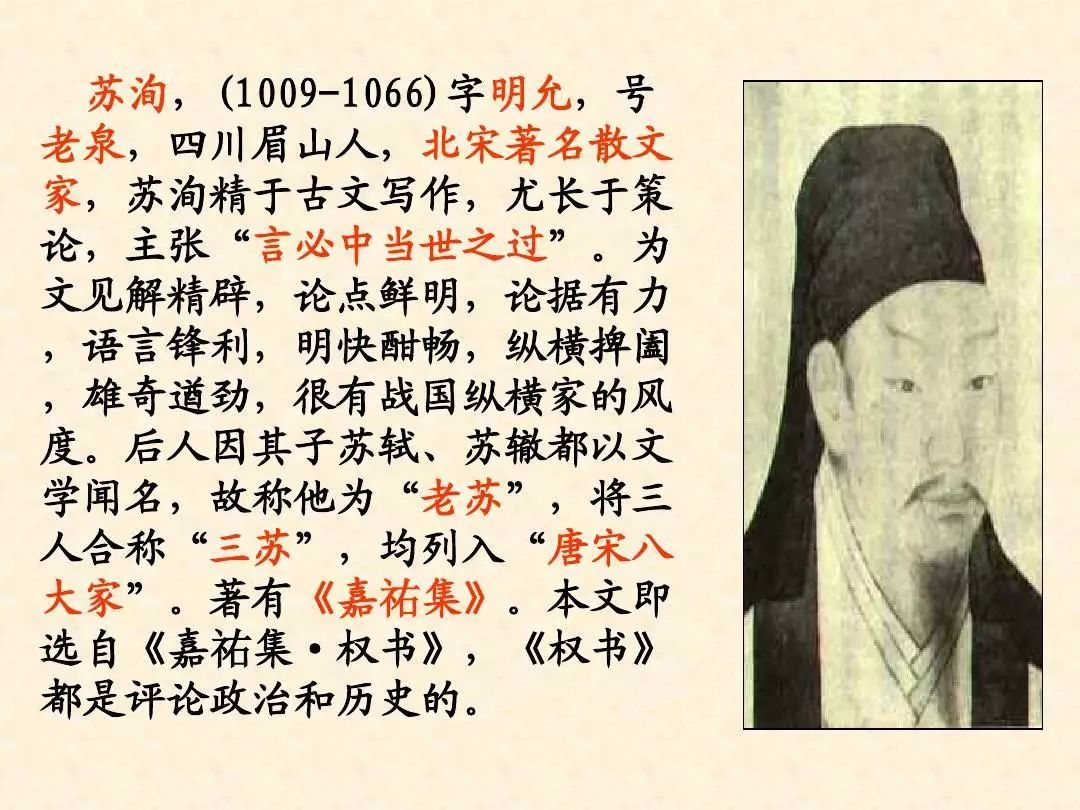 苏洵，(1009-1066)字明允，号
老泉，四川眉山人，北宋著名散文
家，苏洵精于古文写作，尤长于策
论，主张“言必中当世之过”。为
文见解精辟，论点鲜明，论据有力
，语言锋利，明快酣畅，纵横捭阖
，雄奇遒劲，很有战国纵横家的风
度。后人因其子苏轼、苏辙都以文
学闻名，故称他为“老苏”，将三
人合称“三苏”，均列入“唐宋八
大家”。著有《嘉祐集》。本文即
选自《嘉祐集·权书》，《权书》
都是评论政治和历史的。